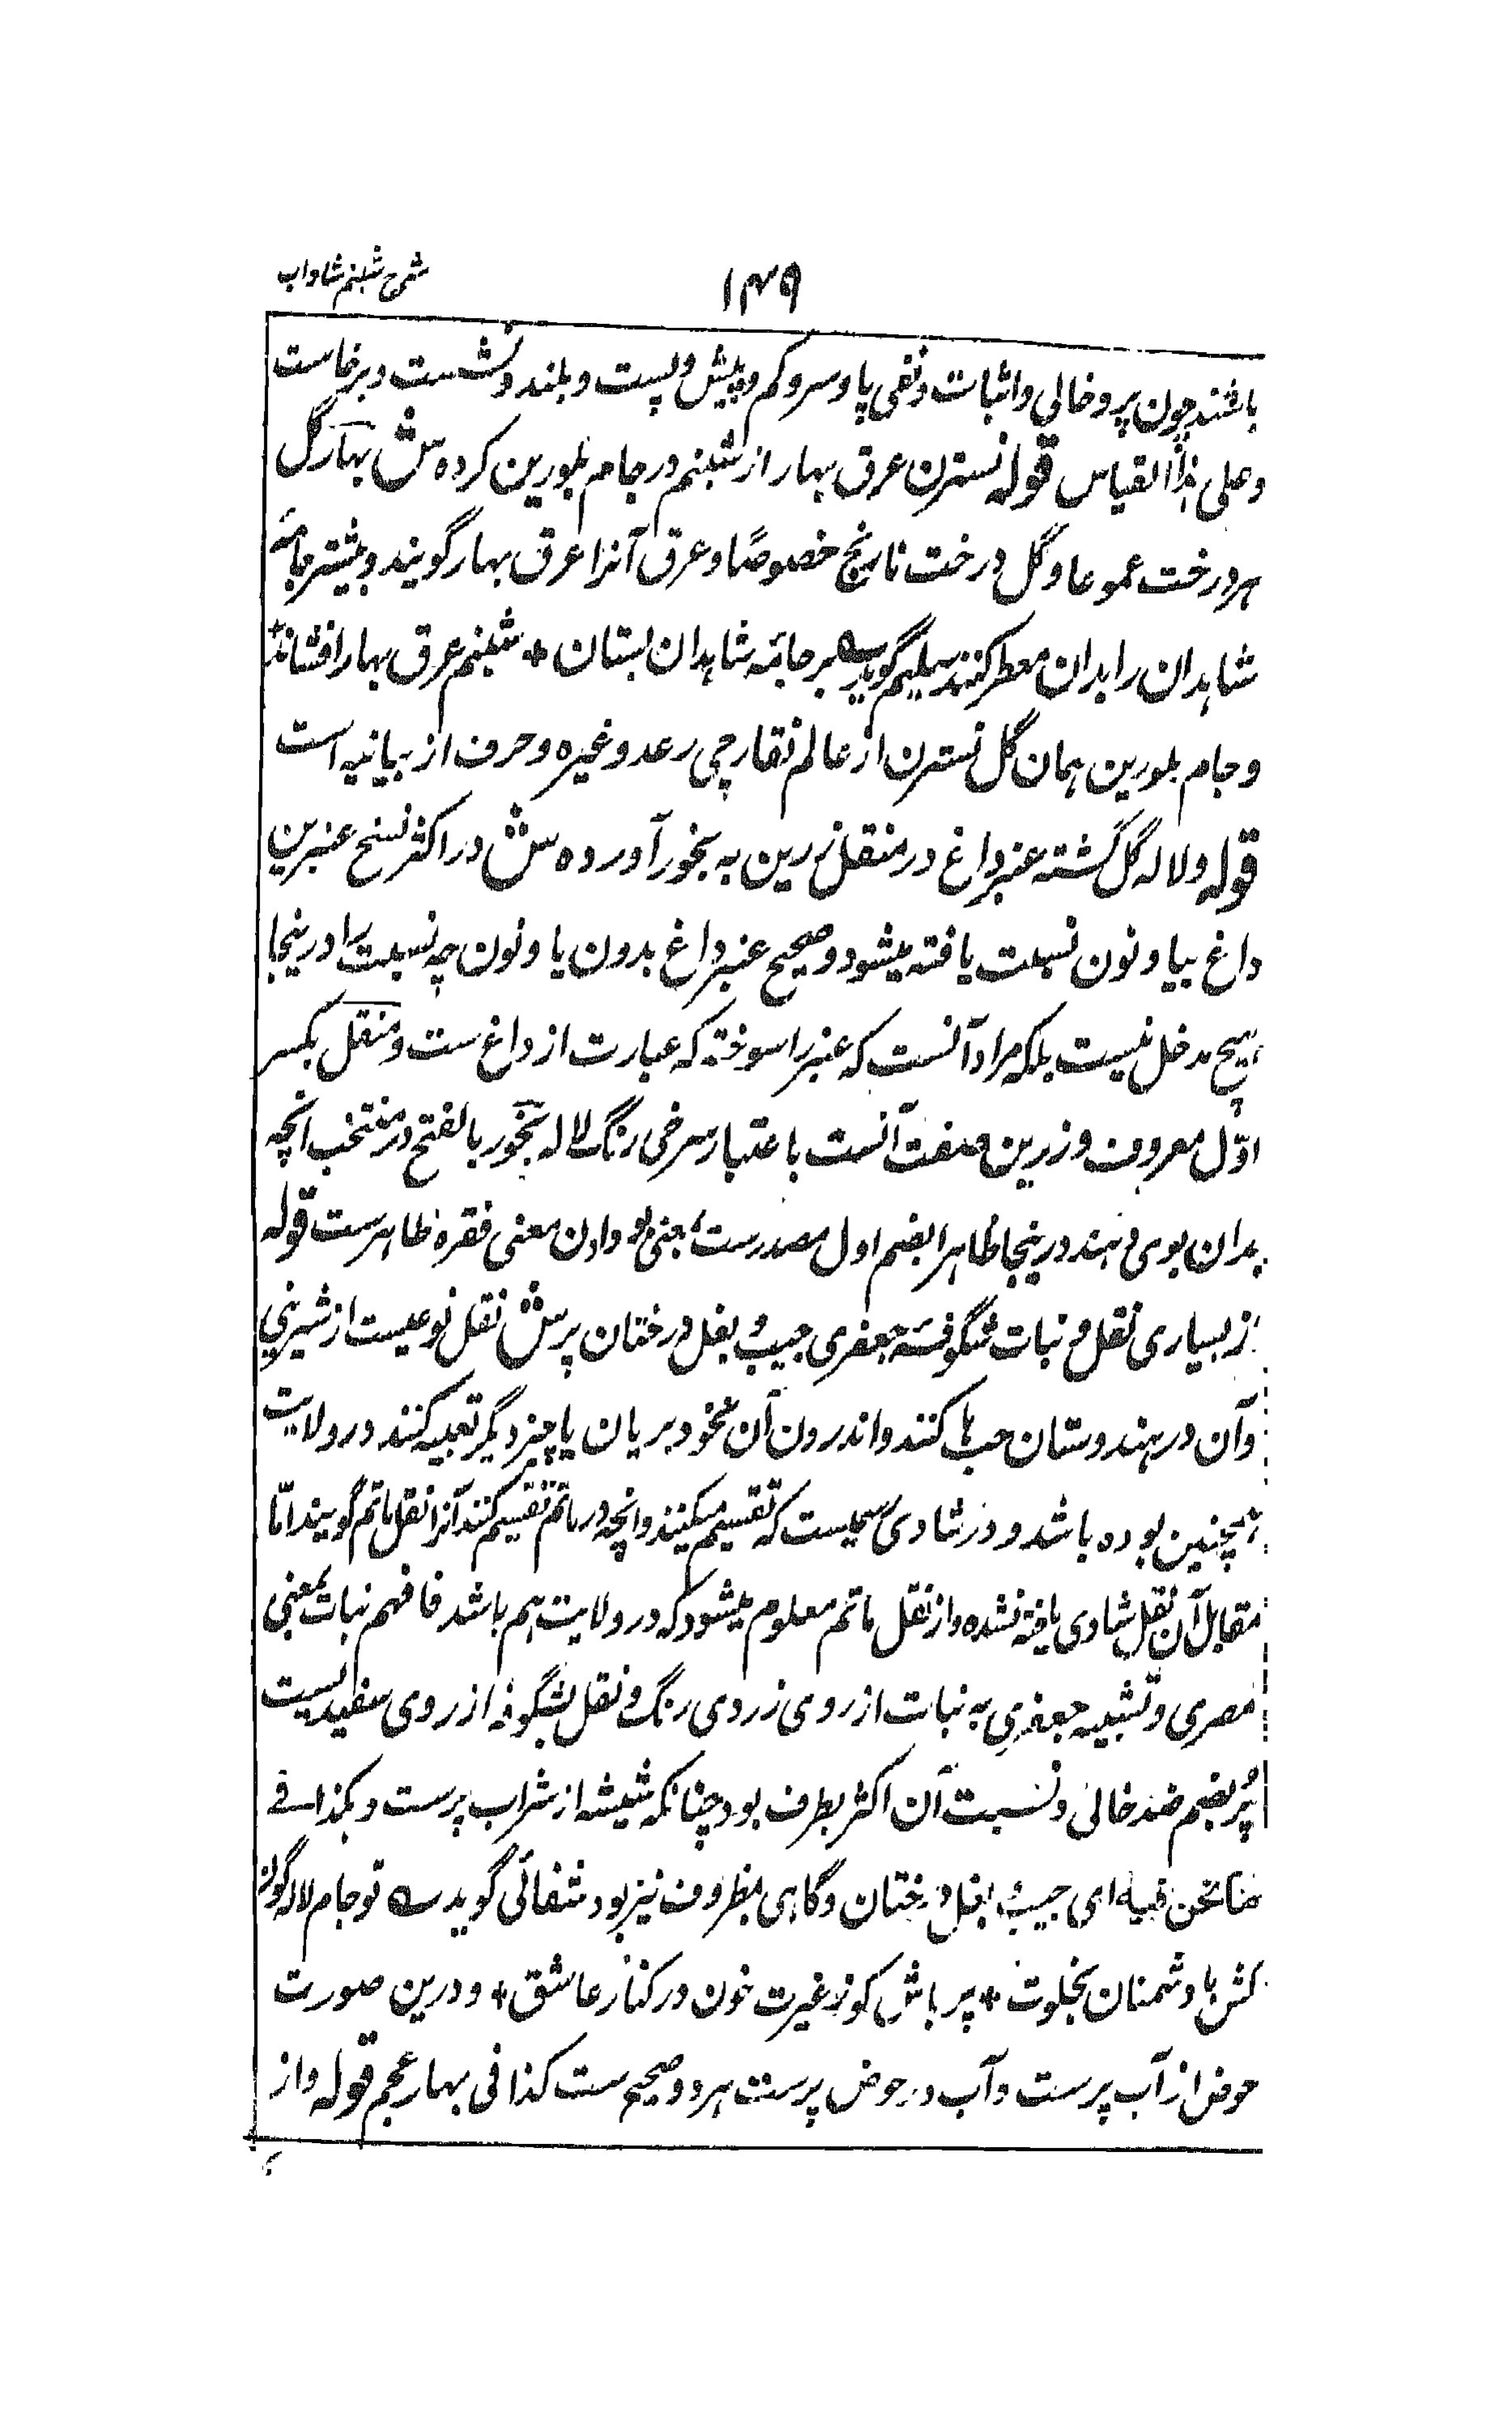 شرح شبنم شاداب
۱۴۹
باشند چون پر و خالی و اثبات و نفی پا و سر و کم و بیش و پست و بلند و نشست و برخاست
و علی هذا القیاس قوله نسترن عرق بهار از شبنم در جام بلورین کرده ش بهار گل
هر درخت عموما و گل درخت نارنج خصوصًا و عرق آنرا عرق بهار گویند و بیشتر جامهٔ
شاهدان را بدان معطر کنند سلیم گوید ؎ بر جامهٔ شاهدان بستان + شبنم عرق بهار افشاند
و جام بلورین همان گل نسترن از عالم نقارچی رعد و غیره و حرف از بیانیه است
قوله و لاله گل گشته عنبر داغ در منقل زرین به بخور آورده ش در اکثر نسخ عنبرین
داغ بیا و نون نسبت یافته میشود و صحیح عنبر داغ بدون یا و نون چه نسبت را درینجا
هیچ مدخل نیست بلکه مراد آنست که عنبر را سوخته که عبارت از داغ ست و منقل بکسر
اوّل معروف و زرین صفت آنست باعتبار سرخی رنگ لاله بخور بالفتح در منتخب انچه
بدان بوی دهند و درینجا ظاهرا بضم اول مصدرست بمعنی بو دادن معنی فقره ظاهرست قوله
ز بسیاری نقل و نبات شگوفه و جعفری جیب و بغل درختان پر ش نقل نوعیست از شیرینی
و آن در هندوستان حب ها کنند و اندرون آن نخود بریان یا چیز دیگر تعبیه کنند در ولایت
همچنین بوده باشد و در شادی رسمیست که تقسیم میکنند و انچه در ماتم تقسیم کنند آنرا نقل ماتم گویند امّا
مقابل آن نقل شادی یافته نشده و از نقل ماتم معلوم میشود که در ولایت هم باشد فافهم نبات بمعنی
مصری و تشبیه جعفری به نبات از روی زردی رنگ و نقل بشگوفه از روی سفیدیست
پُر بضم ضد خالی و نسبت آن اکثر بظرف بود چنانکه شیشه از شراب پرست و هکذا فے
ما نحن فیه ای جیب و بغل درختان و گاهی بمظروف نیز بود شفائی گوید ؎ تو جام لاله گون
کش با دشمنان بخلوت + پر باش گو ز غیرت خون در کنار عاشق + و درین صورت
حوض از آب پرست و آب در حوض پرست هر دو صحیح ست کذا فی بهار عجم قوله و از